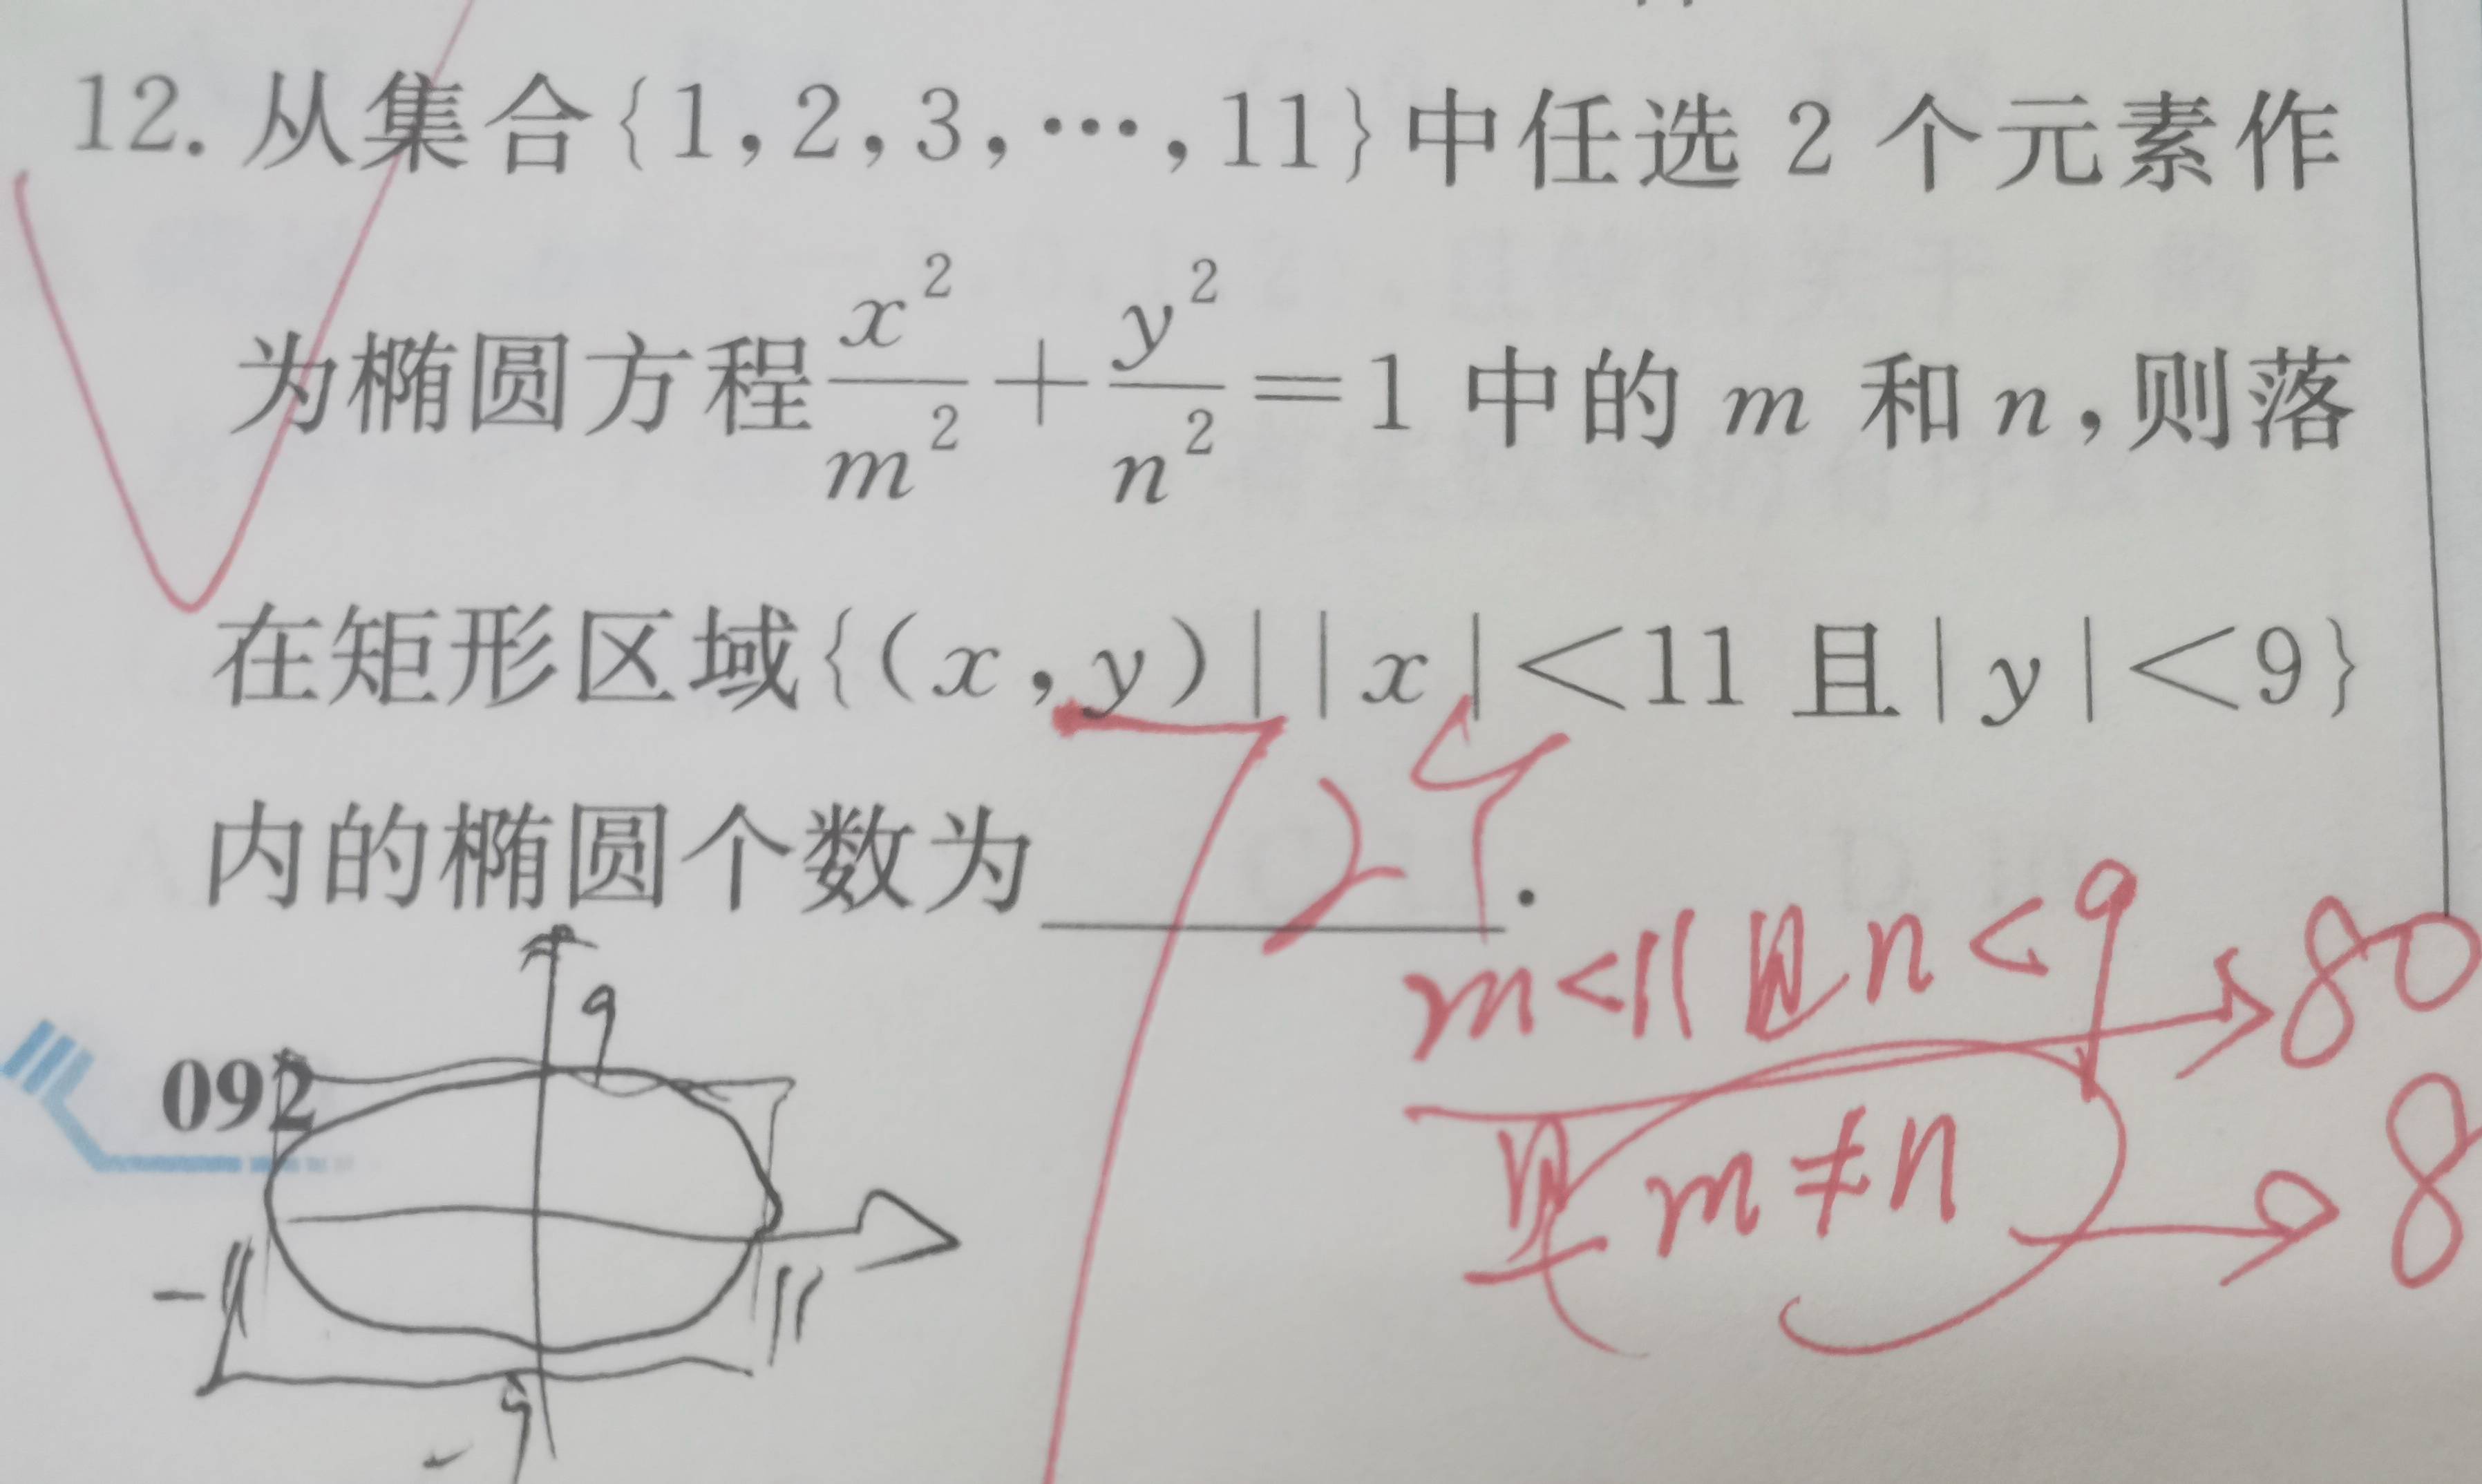 12. 从集合{1,2,3,…,11}中任选 2 个元素作
为椭圆方程x²/m²+y²/n²=1 中的 m 和 n,则落
在矩形区域{(x,y)||x|<11 且|y|<9}
内的椭圆个数为______.
72个
m<11 且 n<9 → 80
且 m≠n → 8
092
9
-11
11
-9